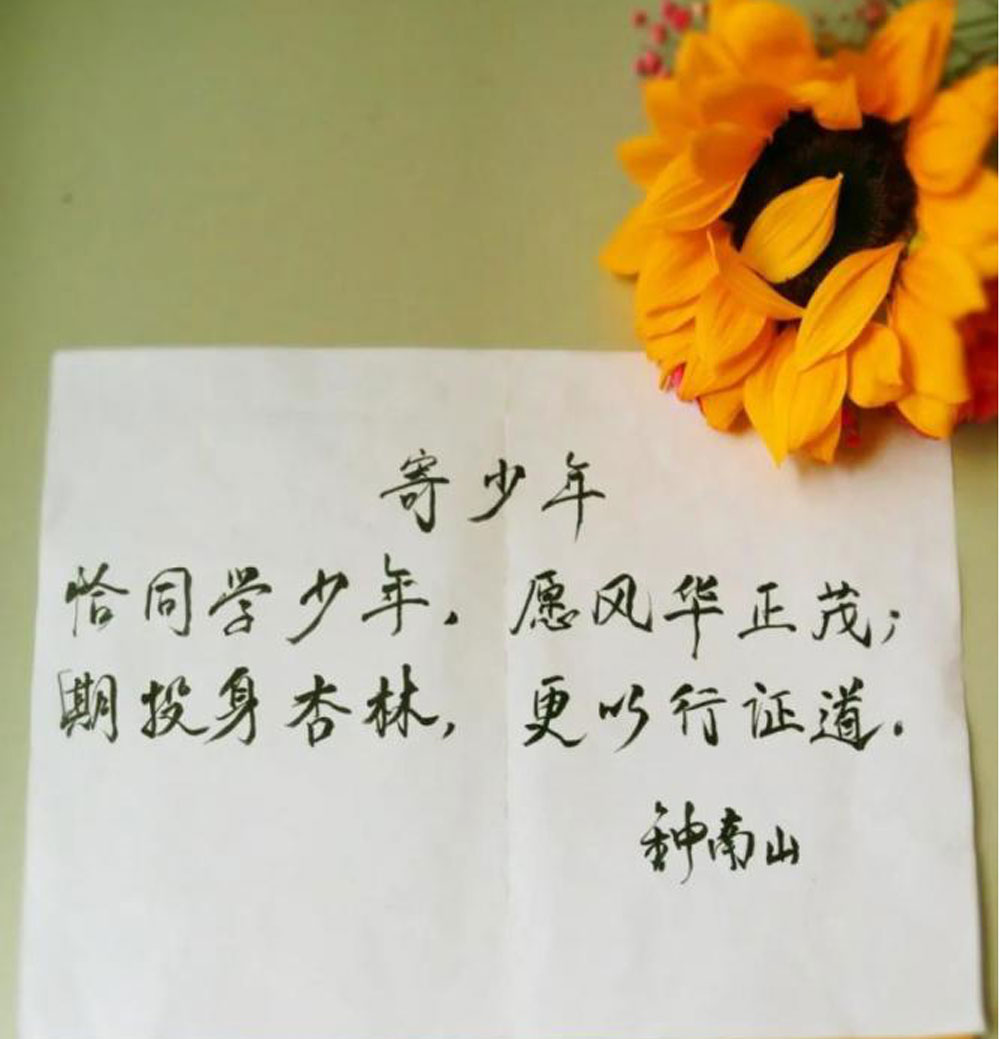 寄少年
恰同学少年，愿风华正茂；
期投身杏林，更以行证道.
钟南山